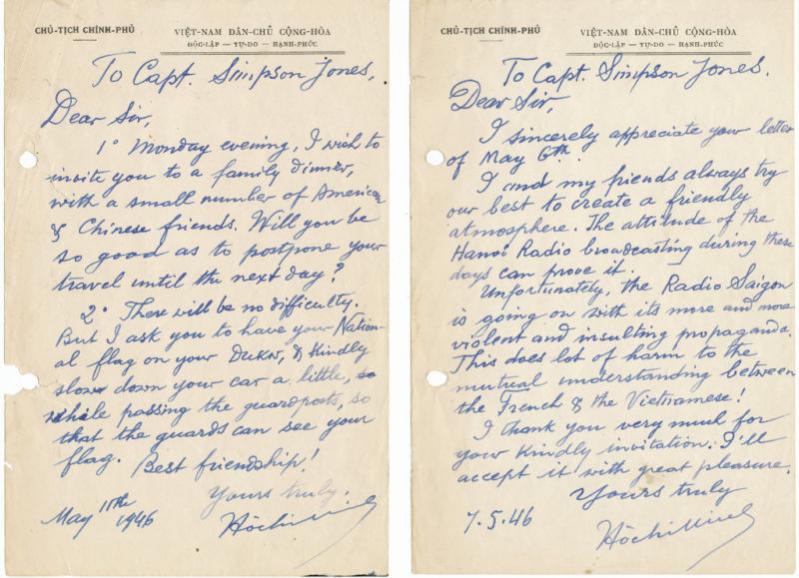 CHỦ-TỊCH CHÍNH-PHỦ
VIỆT-NAM DÂN-CHỦ CỘNG-HÒA
ĐỘC-LẬP — TỰ-DO — HẠNH-PHÚC
To Capt. Simpson Jones,
Dear Sir,
1° Monday evening, I wish to
invite you to a family dinner,
with a small number of American
& Chinese friends. Will you be
so good as to postpone your
travel until the next day?
2° There will be no difficulty.
But I ask you to have your Nation-
al flag on your & Kindly
slow down your car a little,
while passing the guardposts, so
that the guards can see your
flag. Best friendship!
Yours truly,
May 11th 1946
Hôchiminh
CHỦ-TỊCH CHÍNH-PHỦ
VIỆT-NAM DÂN-CHỦ CỘNG-HÒA
ĐỘC-LẬP — TỰ-DO — HẠNH-PHÚC
To Capt. Simpson Jones.
Dear Sir,
I sincerely appreciate your letter
of May 6th.
I and my friends always try
our best to create a friendly
atmosphere. The attitude of the
Hanoi Radio broadcasting during these
days can prove it.
Unfortunately, the Radio Saigon
is going on with its more and more
violent and insulting propaganda.
This does lot of harm to the
mutual understanding between
the French & the Vietnamese!
I thank you very much for
your Kindly invitation. I'll
accept it with great pleasure.
Yours truly
7.5.46
Hôchiminh